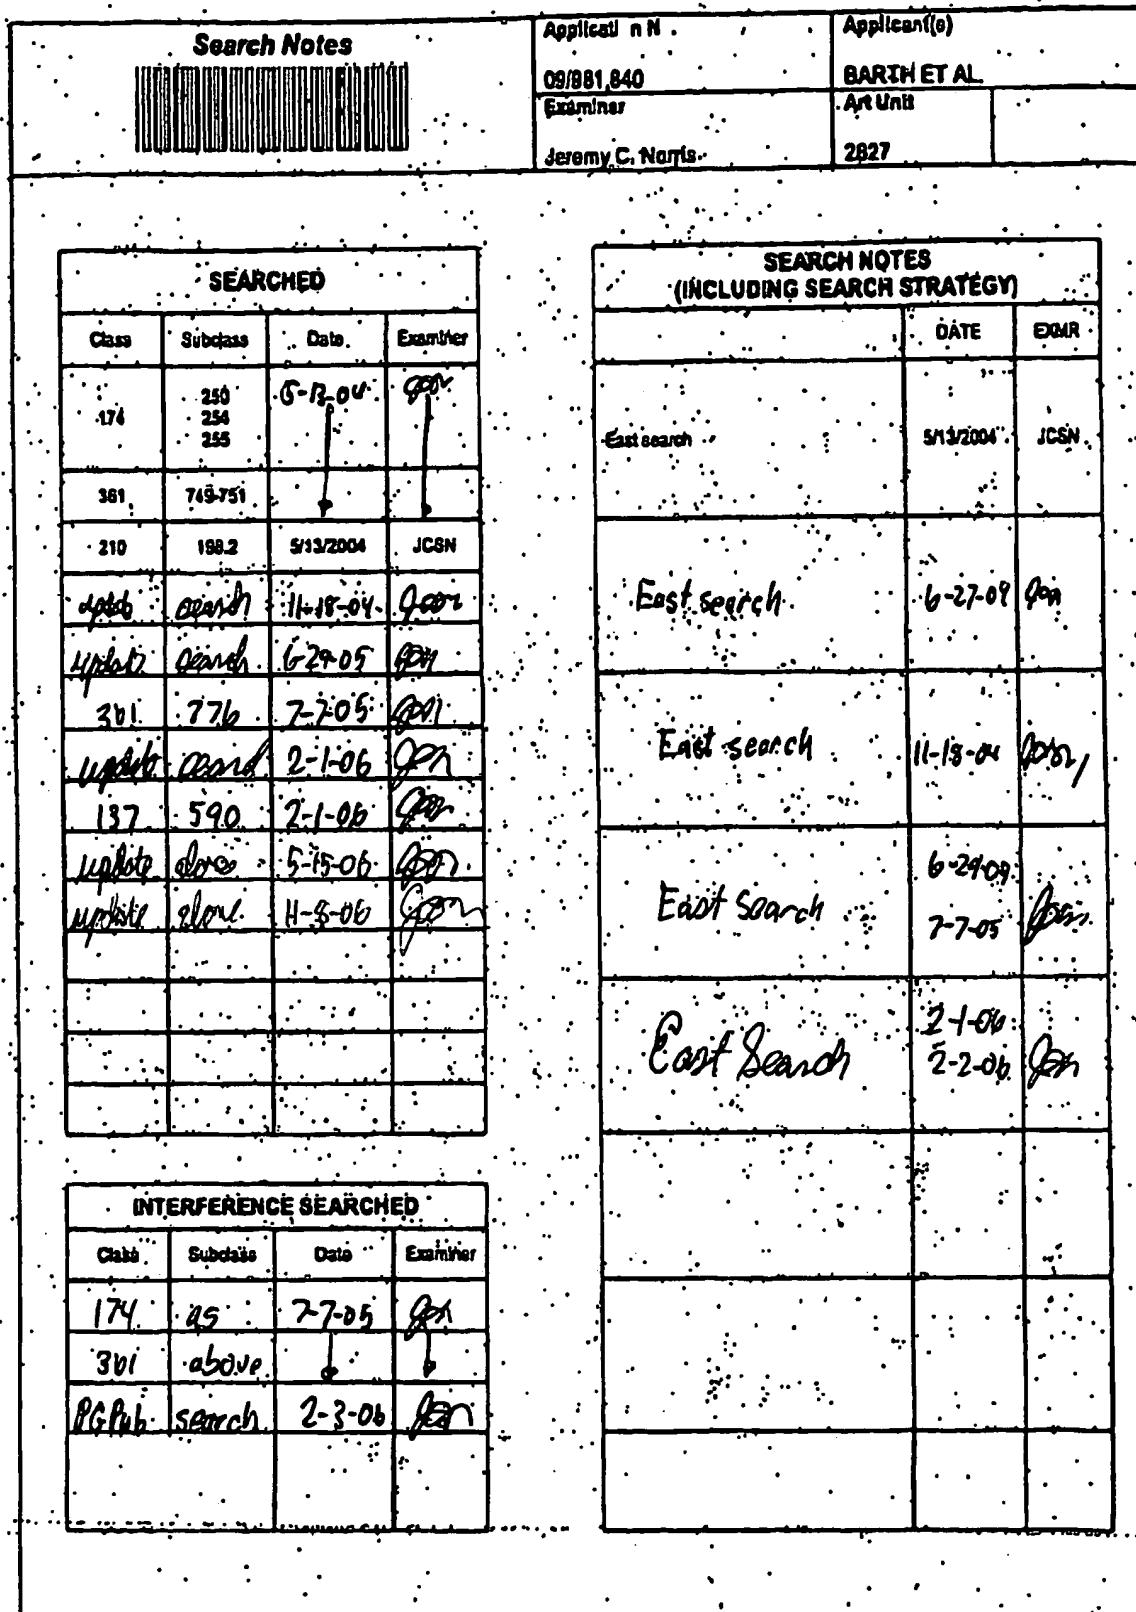 Search Notes
Applicati n N .
09/881,840
Applicant(s)
BARTH ET AL.
Examiner
Jeremy C. Norris
Art Unit
2827
SEARCHED
Class Subclass Date Examiner
174 250 5-13-04
254
255
361 749-751
210 198.2 5/13/2004 JCSN
search 11-18-04
update search 6-29-05
361 776 7-7-05
update search 2-1-06
137 590 2-1-06
update above 5-15-06
update above 11-8-06
INTERFERENCE SEARCHED
Class Subclass Date Examiner
174 as 7-7-05
361 above
PGPub search 2-3-06
SEARCH NOTES
(INCLUDING SEARCH STRATEGY)
DATE EXMR
East search 5/13/2004 JCSN
East search 6-27-04
East search 11-18-04
East Search
7-7-05
East Search 2-1-06
2-2-06